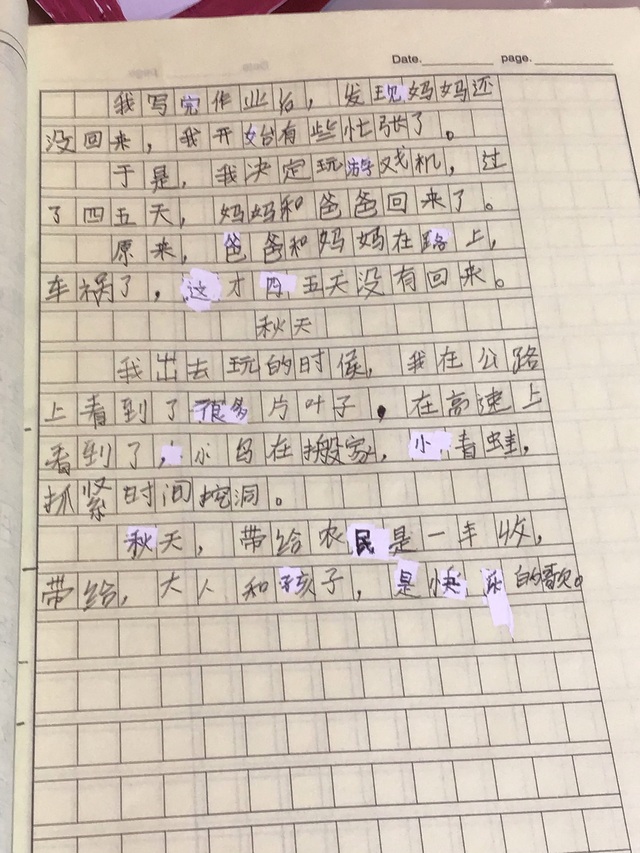 Date. page.
我写完作业后，发现妈妈还
没回来，我开始有些忙张了。
于是，我决定玩游戏机，过
了四五天，妈妈和爸爸回来了。
原来，爸爸和妈妈在路上，
车祸了，这才四五天没有回来。
秋天
我出去玩的时侯，我在公路
上看到了很多片叶子，在高速上
看到了，小鸟在搬家，小青蛙，
抓紧时间挖洞。
秋天，带给农民是一丰收，
带给，大人和孩子，是快乐的歌。